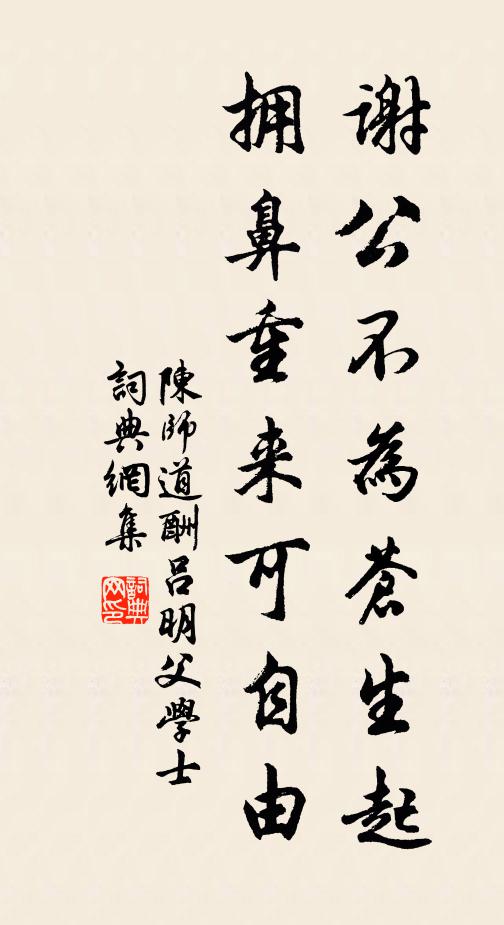 謝公不為蒼生起
拥鼻重来可自由
陳師道酬吕明父學士
詞典網集
詞典網印